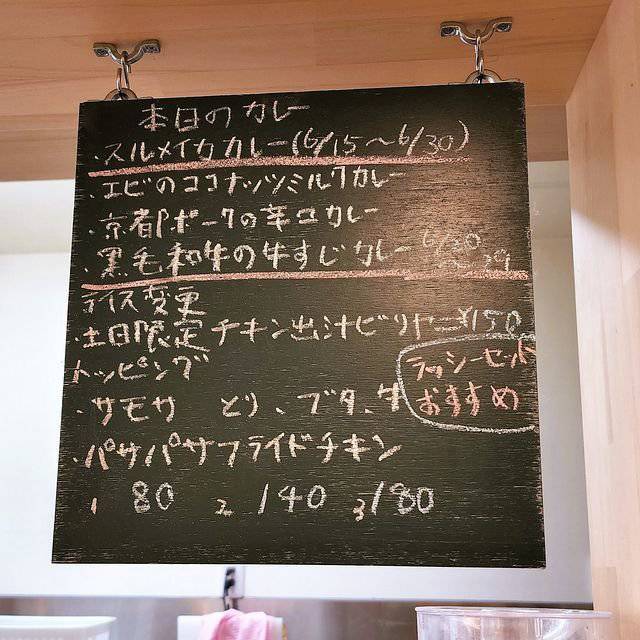 本日のカレー
・スルメイカカレー(6/15〜6/30)
・エビのココナッツミルクカレー
・京都ポークの辛口カレー
・黒毛和牛の牛すじカレー 6/20
〜29
ライス変更
・土日限定チキン出汁ビリヤニ¥150
トッピング
・サモサ とり、ブタ、牛
ラッシーセット
おすすめ
・パサパサフライドチキン
1 80 2 140 3 180